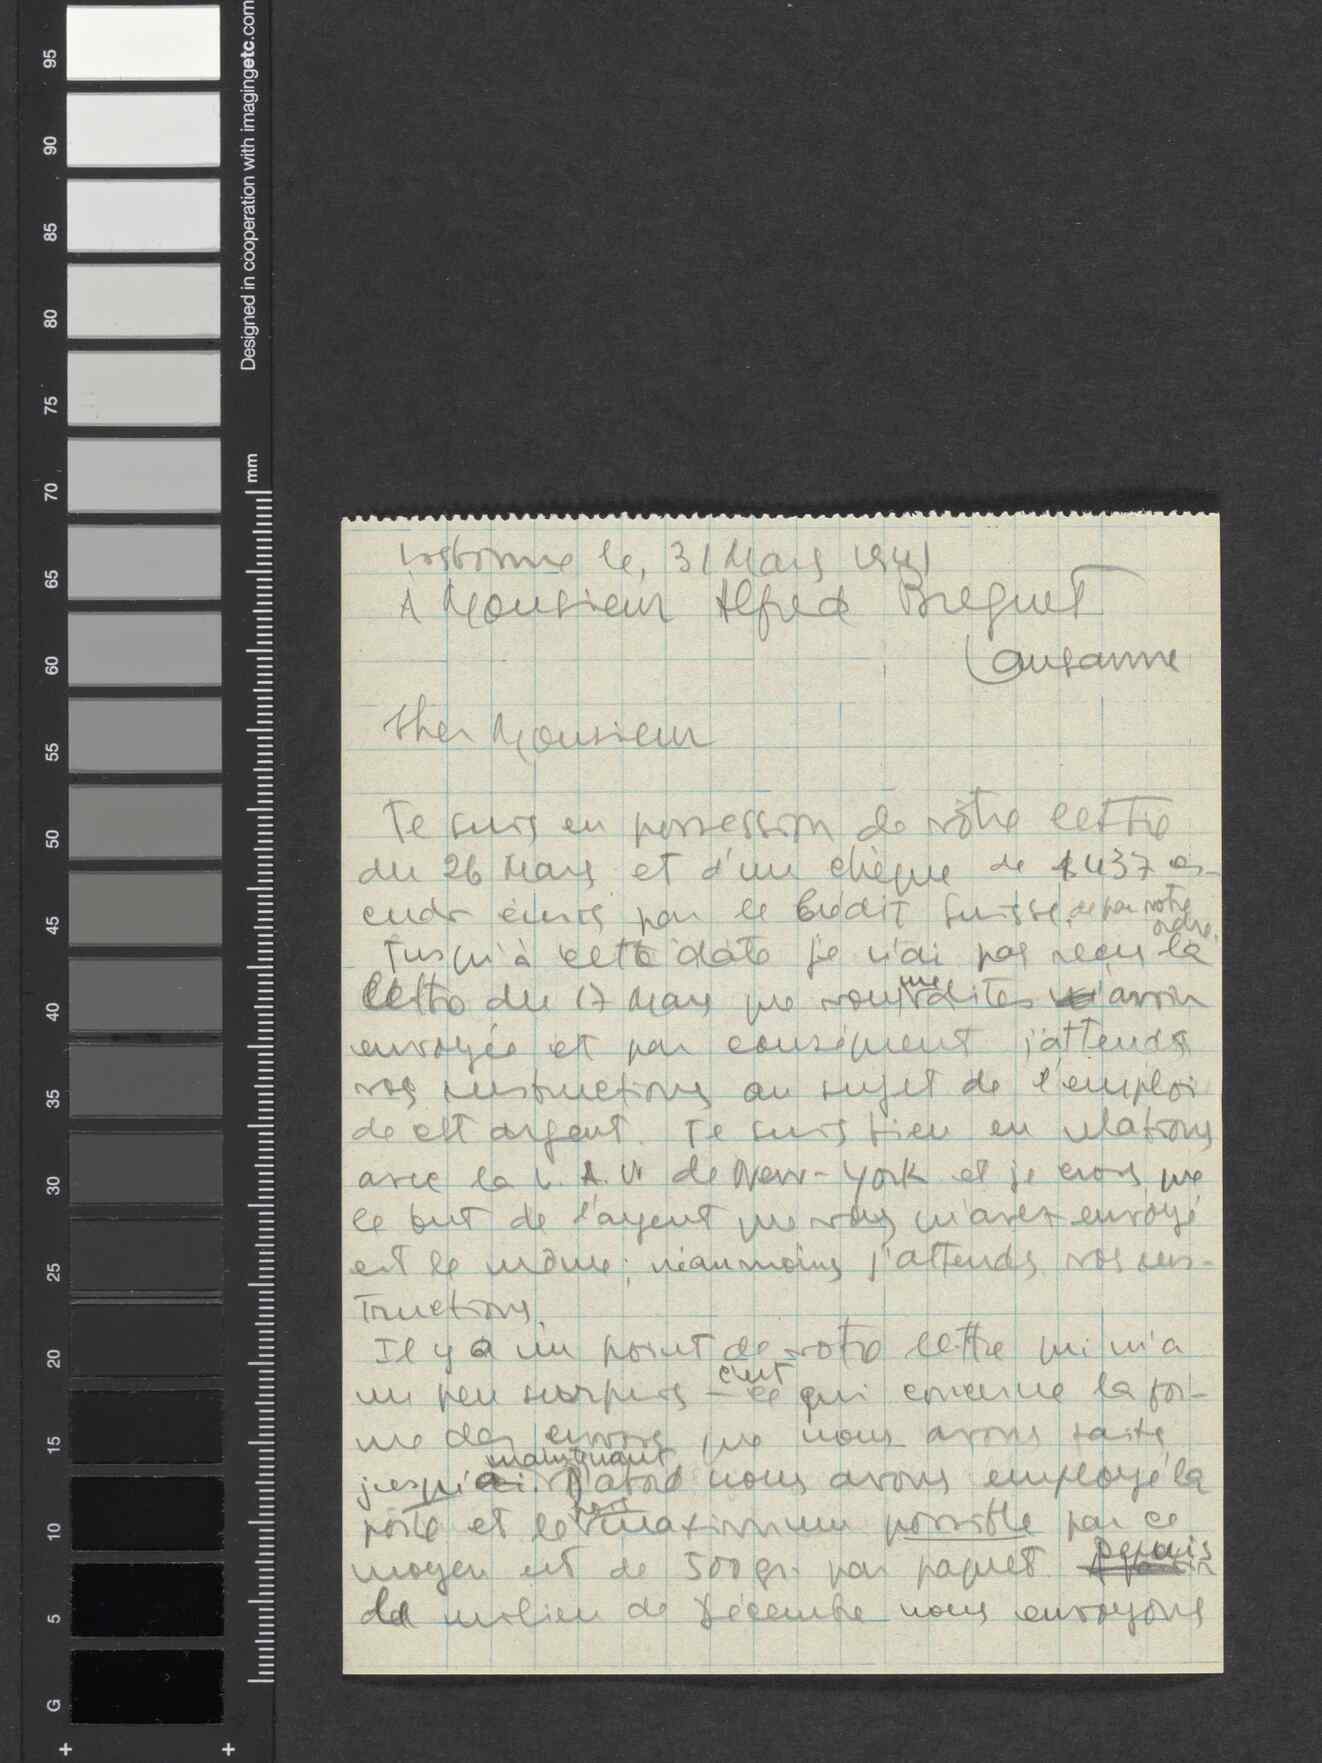 95
90
85
80
75
70
65
60
55
50
45
40
35
30
25
20
15
10
5
G
Designed in cooperation with imagingetc.com
mm
Lisbonne le, 31 Mars 1941
À Monsieur Alfred Breguet
Lausanne
Cher Monsieur
Je suis en possession de vôtre lettre
du 26 Mars et d'un chèque de $437 es-
cudos émis par le Crédit Suisse, de par votre
ordre.
Jusqu'à cette date je n'ai pas reçu la
lettre du 17 Mars que vous me dites avoir
envoyée et par conséquent j'attends
vos instructions au sujet de l'emploi
de cet argent. Je suis bien en relations
avec la L. A. N. de New-York et je crois que
le but de l'argent que vous m'avez envoyé
est le même; néanmoins j'attends vos ins-
tructions.
Il y a un point de votre lettre qui m'a
un peu surpris – c'est ce qui concerne la for-
me des envois que nous avons faits
jusqu'à maintenant. D'abord nous avons employé la
poste et le poids maximum possible par ce
moyen est de 500 gr. par paquet. Depuis
le milieu de Décembre nous envoyons